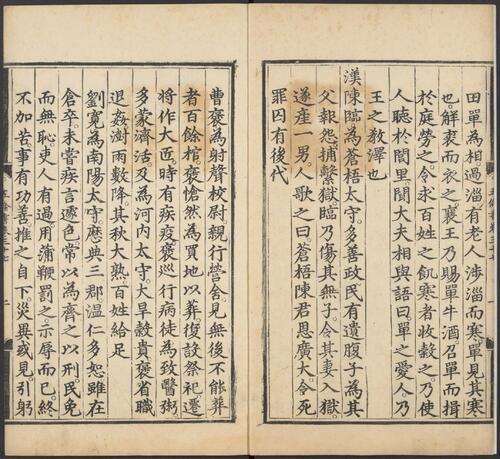 田單為相過淄有老人渉淄而寒單見其寒
也解裘而衣之襄王乃賜單牛酒召單而揖
於庭勞之令求百姓之飢寒者收穀之乃使
人聴於閭里聞大夫相與語曰單之愛人乃
王之教澤也
漢陳臨為蒼梧太守多善政民有遺腹子為其
父報怨捕繫獄臨乃傷其無子令其妻入獄
遂產一男人歌之曰蒼梧陳君恩廣大令死
罪囚有後代
曹褒為射聲校尉親行營舍見無後不能葬
者百餘棺褒愴然為買地以葬復設祭祀遷
將作大匠時有疾疫褒巡行病徒為致醫粥
多蒙濟活及為河內太守大旱穀貴褒省職
退姦澍雨數降其秋大熟百姓給足
劉寬為南陽太守歷典三郡溫仁多恕雖在
倉卒未嘗疾言遽色常以為齊之以刑民免
而無恥吏人有過用蒲鞭罰之示辱而已終
不加苦事有功善推之自下災異或見引躬